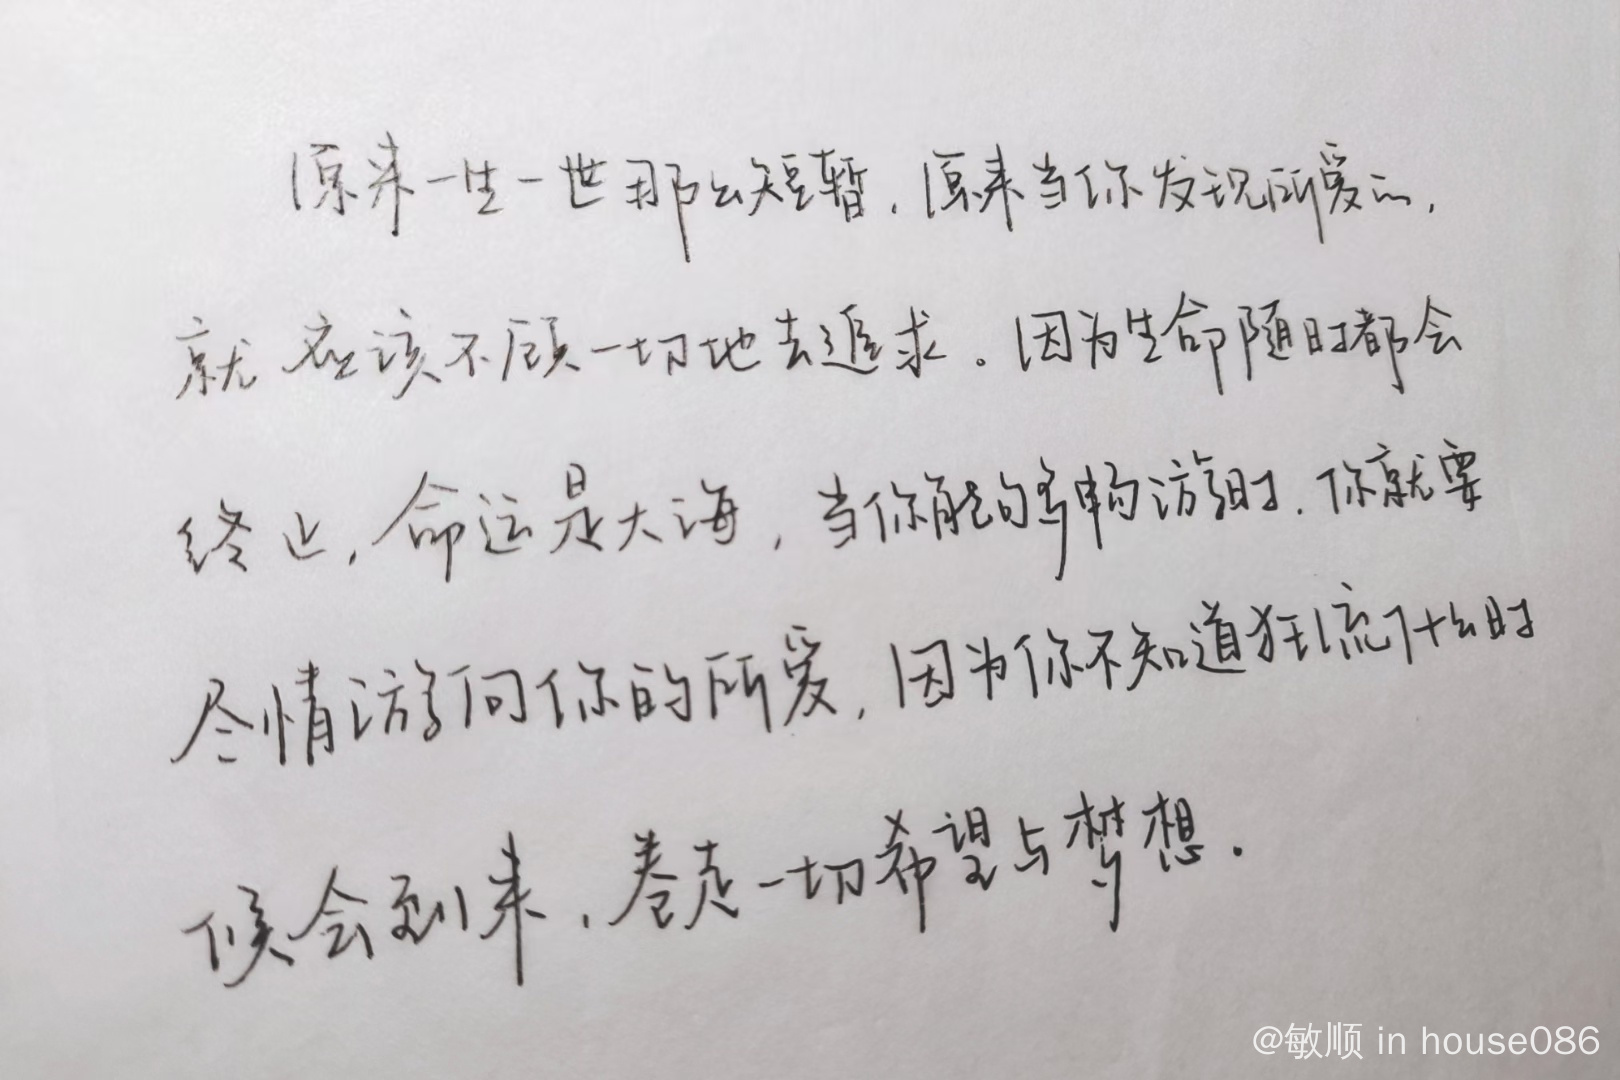 原来一生一世那么短暂，原来当你发现所爱的，
就应该不顾一切地去追求。因为生命随时都会
终止，命运是大海，当你能够畅游时，你就要
尽情游向你的所爱，因为你不知道狂流什么时
候会到来，卷走一切希望与梦想。
@敏顺 in house086